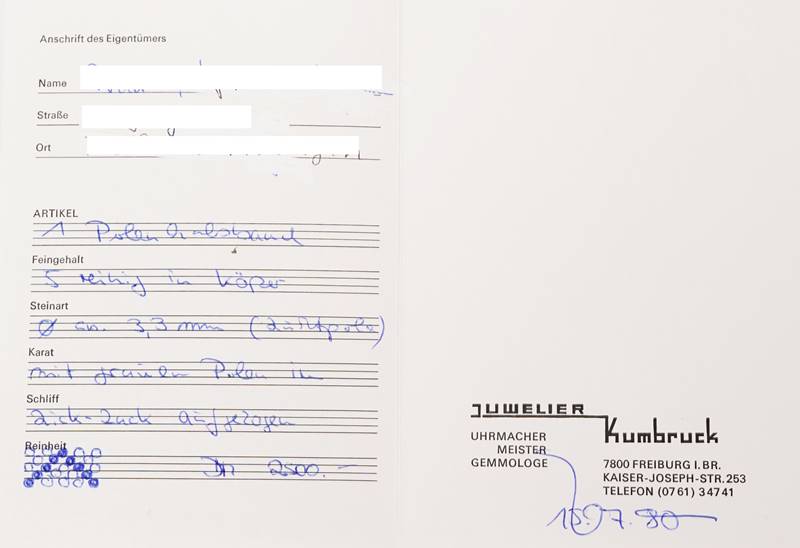 Anschrift des Eigentümers
Name
Straße
Ort
ARTIKEL
1 Polen halsband
Feingehalt
5 reihig in Köper
Steinart
Ø ca. 3,3 mm (Zuchtpole)
Karat
mit grauen Polen in
Schliff
Zick-Zack aufgezogen
Reinheit
DM 2500.-
JUWELIER Kumbruck
UHRMACHER
MEISTER
GEMMOLOGE
7800 FREIBURG I. BR.
KAISER-JOSEPH-STR. 253
TELEFON (0761) 34741